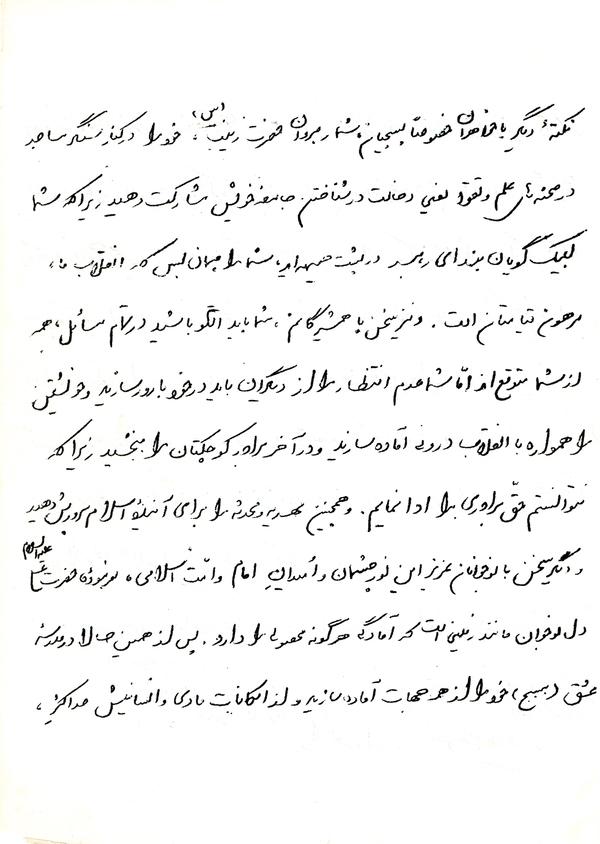 نکتهٔ دیگر با خواهران خصوصاً بسیجیان، شما رهروان حضرت زینب (س)، خود را در کنار سنگر مساجد
در صحنه‌های علم و تقوا یعنی دخالت در شناختن جامعه خویش مشارکت دهید زیرا که شما
لبیک گویان به ندای رهبر در پشت جبهه‌اید، شما را همان بس که انقلاب ما،
مرهون قیامتان است. و نیز سخنی با همشیرگانم، شما باید الگو باشید در تمام مسائل، همه
از شما متوقع اند امّا شما عدم انتظار را از دیگران باید در خود بارور سازید و خویشتن
را همواره با انقلاب درونی آماده سازید و در آخر برادر کوچکتان را ببخشید زیرا که
نتوانستم حقّ برادری را ادا نمایم. و همچنین مهدیه و محدثه را برای آیندهٔ اسلام پرورش دهید
و اگر سخنی با نوجوانان عزیز این نور چشمان و امیدان امام و امّت اسلامی، به فرمودهٔ حضرت علی علیه السلام
دل نوجوان مانند زمینی است که آمادگی هرگونه محصولی را دارد. پس از همین حالا در مدرسهٔ
عشق (بسیج) خود را از هر جهات آماده سازید و از امکانات مادی و انسانیش حداکثر،